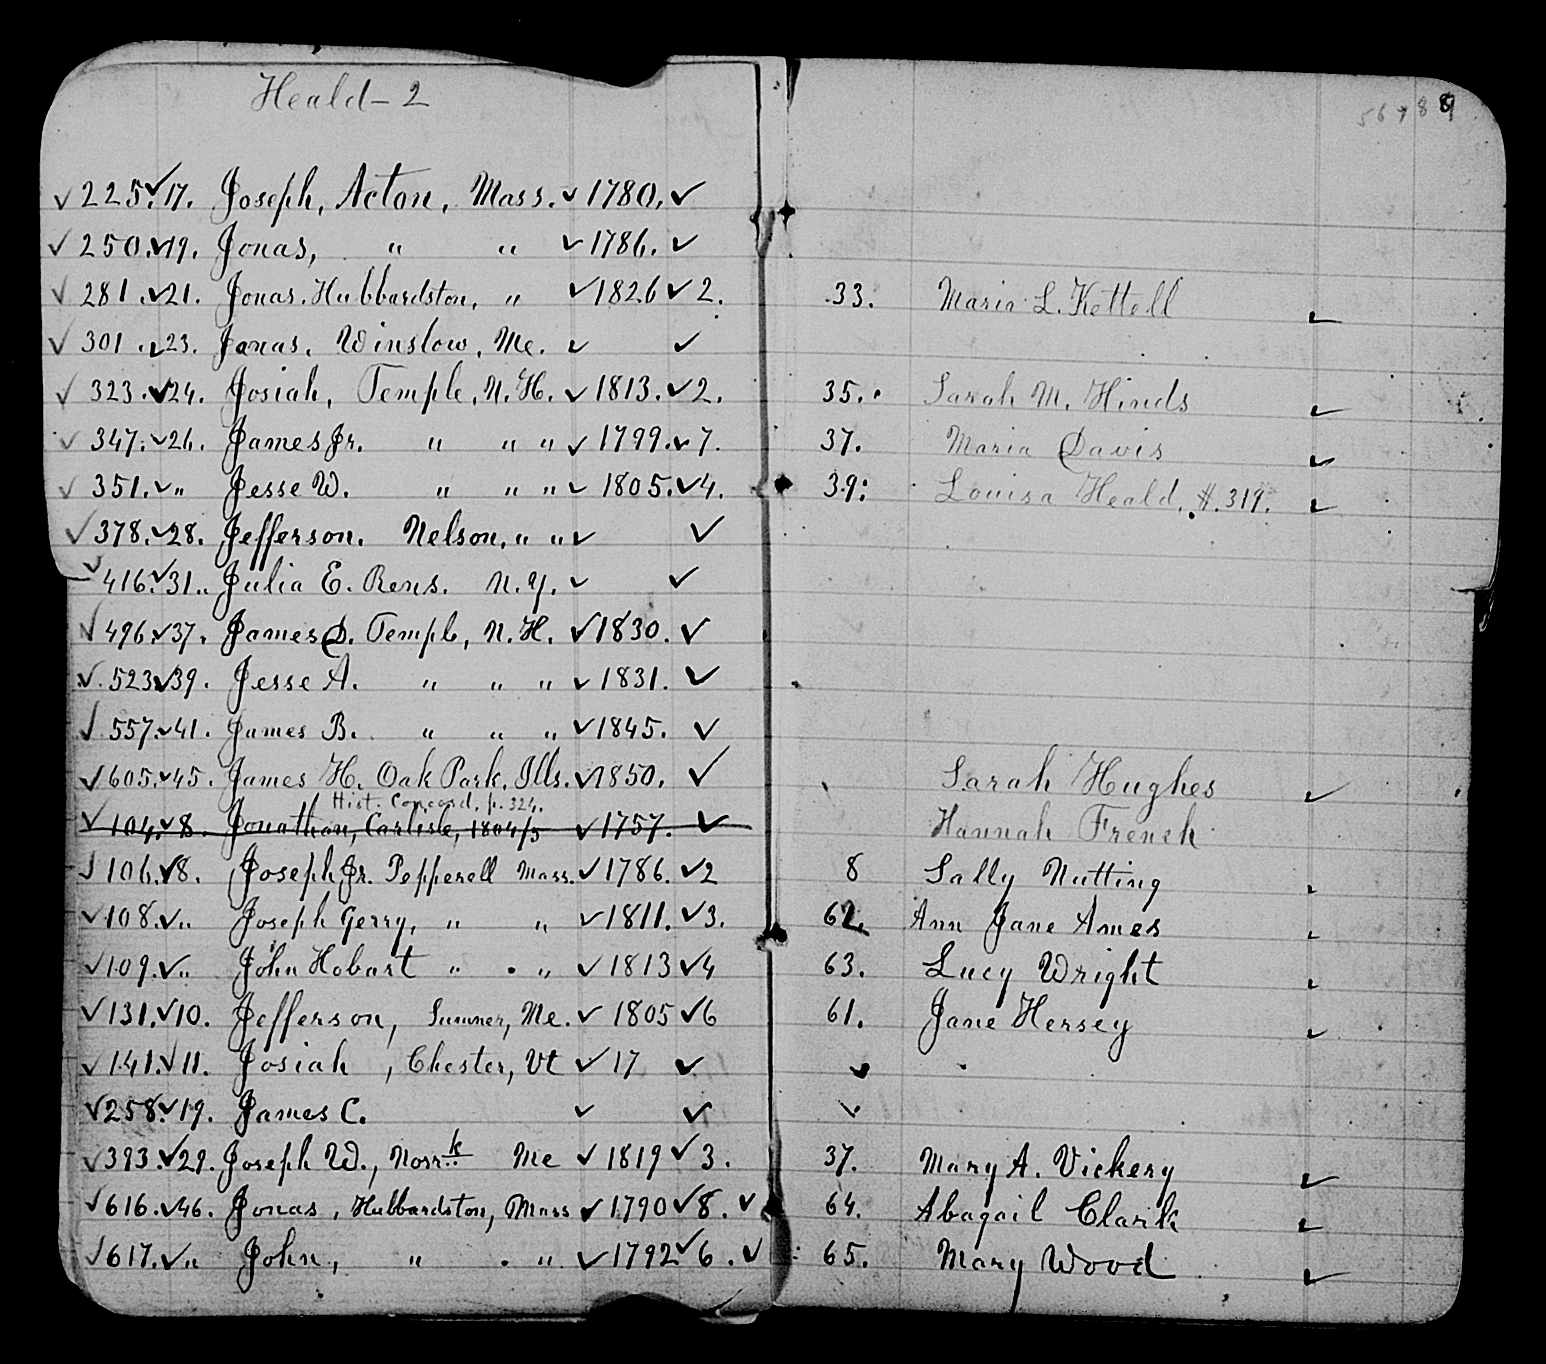 Heald - 2
56788
✓ 225. ✓ 17. Joseph, Acton, Mass. ✓ 1780. ✓
✓ 250. ✓ 19. Jonas, " " ✓ 1786. ✓
✓ 281. ✓ 21. Jonas. Hubbardston, " ✓ 1826 ✓ 2. 33. Maria L. Kettell ✓
✓ 301. ✓ 23. Jonas. Winslow, Me. ✓ ✓
✓ 323. ✓ 24. Josiah, Temple, N.H. ✓ 1813. ✓ 2. 35. Sarah M. Hinds ✓
✓ 347. ✓ 26. James Jr. " " " ✓ 1799. ✓ 7. 37. Maria Davis ✓
✓ 351. ✓ " Jesse W. " " " ✓ 1805. ✓ 4. 39. Louisa Heald, #.319. ✓
✓ 378. ✓ 28. Jefferson. Nelson, " " ✓ ✓
✓ 416. ✓ 31. Julia E. Rens. N.Y. ✓ ✓
✓ 496. ✓ 37. James D. Temple, N.H. ✓ 1830. ✓
✓ 523 ✓ 39. Jesse A. " " " ✓ 1831. ✓
✓ 557. ✓ 41. James B. " " " ✓ 1845. ✓
✓ 605. ✓ 45. James H. Oak Park, Ills. ✓ 1850. ✓ Sarah Hughes ✓
Hist. Concord, p. 324.
✓ 104. ✓ 8. Jonathan, Carlisle, 1804/5 ✓ 1757. ✓ Hannah French
✓ 106. ✓ 8. Joseph Jr. Pepperell Mass. ✓ 1786. ✓ 2 8 Sally Nutting ✓
✓ 108. ✓ " Joseph Gerry, " " ✓ 1811. ✓ 3. 62. Ann Jane Ames ✓
✓ 109. ✓ " John Hobart " " ✓ 1813 ✓ 4 63. Lucy Wright ✓
✓ 131. ✓ 10. Jefferson, Sumner, Me. ✓ 1805 ✓ 6 61. Jane Hersey ✓
✓ 141. ✓ 11. Josiah, Chester, Vt ✓ 17 ✓ ✓
✓ 258. ✓ 19. James C. ✓ ✓ ✓
✓ 393. ✓ 29. Joseph W., Norr.k Me ✓ 1819 ✓ 3. 37. Mary A. Vickery ✓
✓ 616. ✓ 46. Jonas, Hubbardston, Mass ✓ 1790 ✓ 8. ✓ 64. Abagail Clark ✓
✓ 617. ✓ " John, " " ✓ 1792 ✓ 6. ✓ 65. Mary Wood ✓